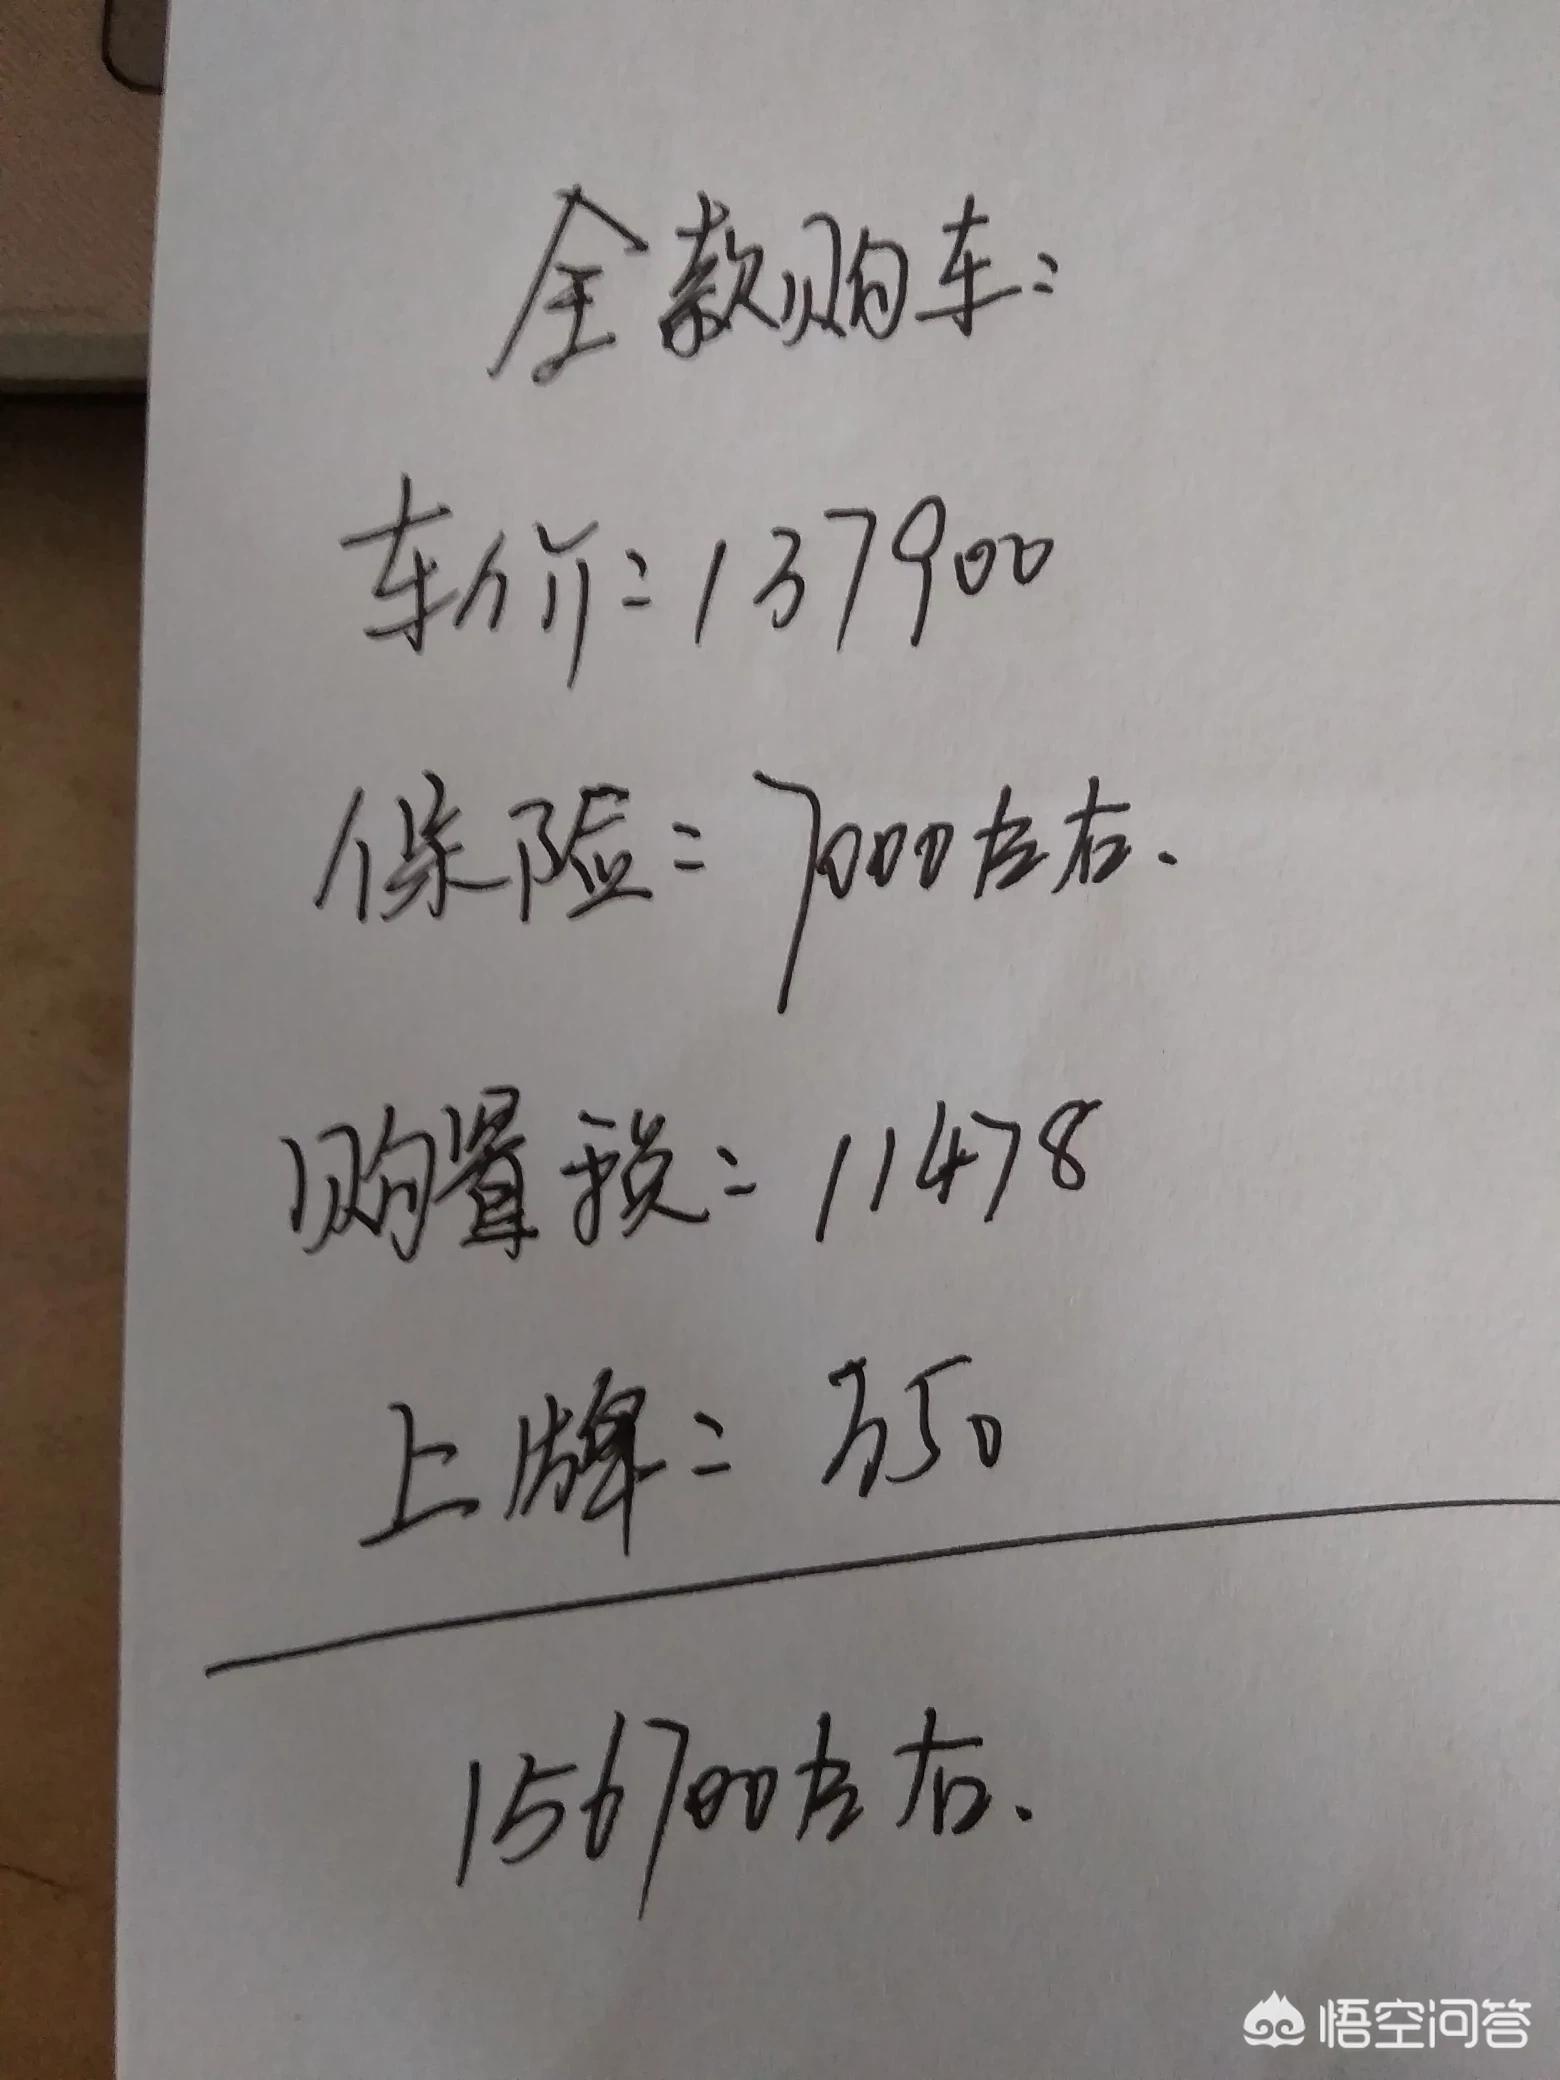 全款购车:
车价:137900
保险:7000左右.
购置税:11478
上牌:350
156700左右.
悟空问答